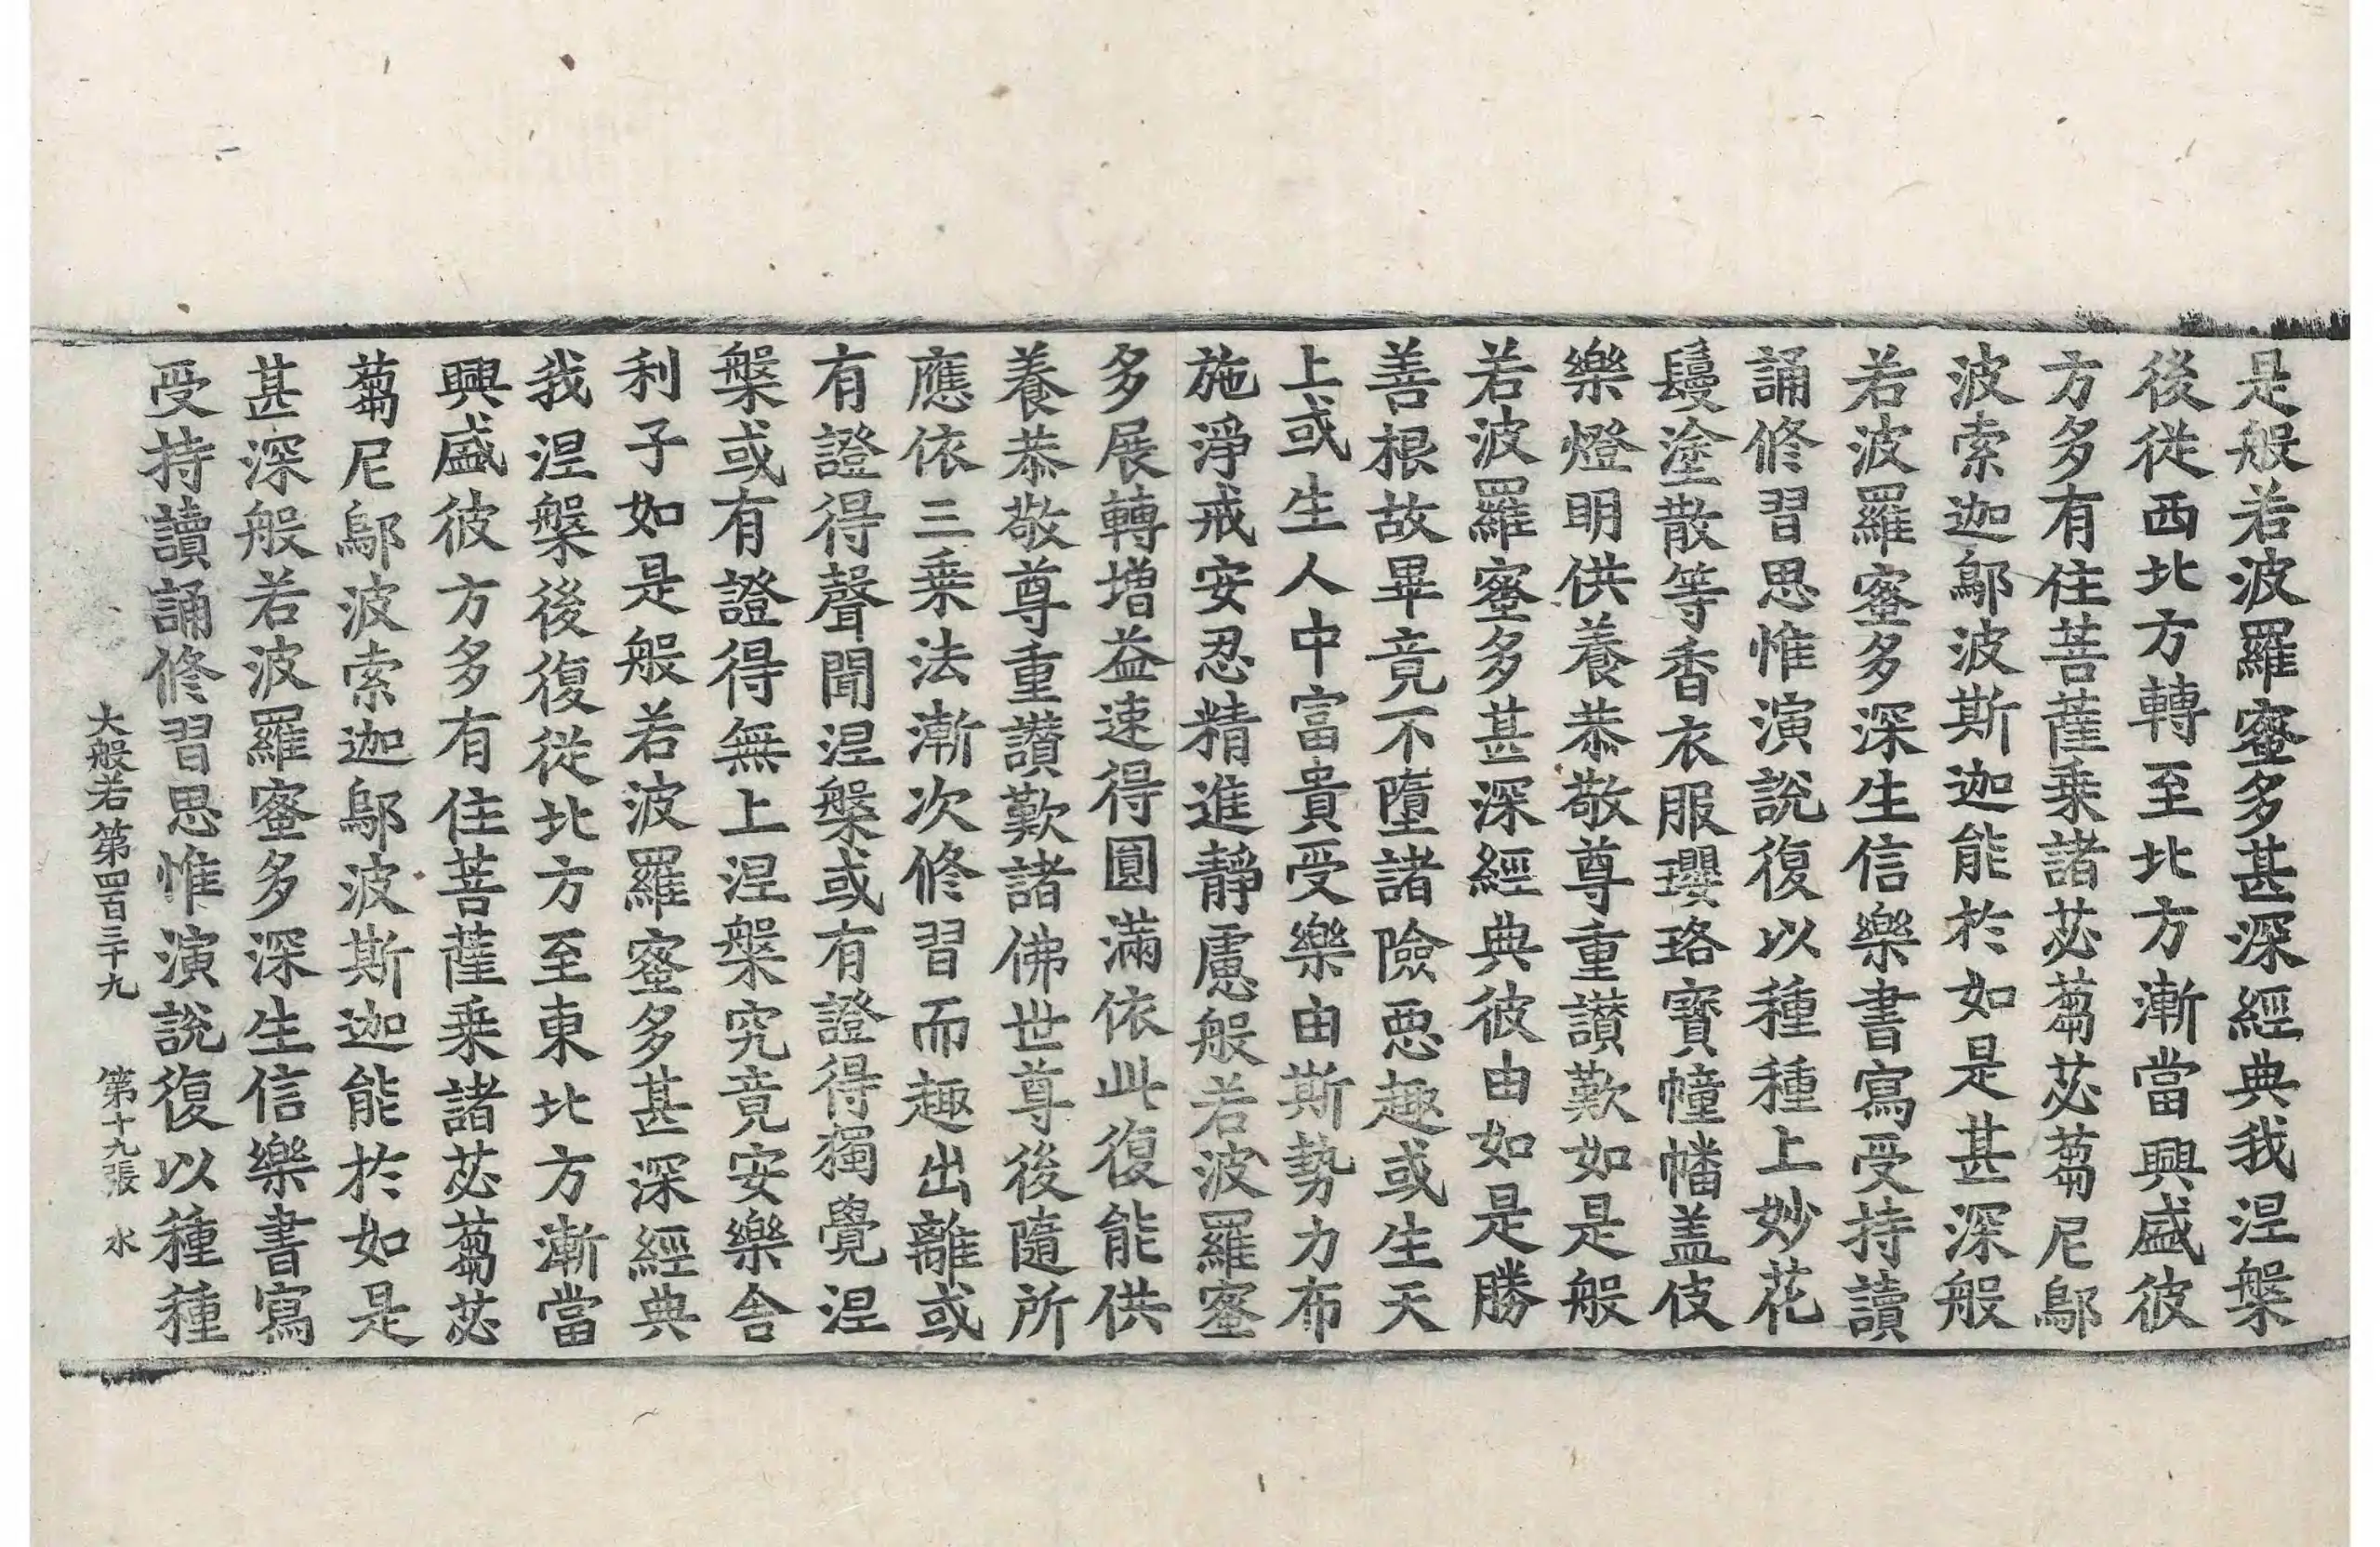 是般若波羅蜜多甚深經典我涅槃
後從西北方轉至北方漸當興盛彼
方多有住菩薩乘諸苾蒭苾蒭尼鄔
波索迦鄔波斯迦能於如是甚深般
若波羅蜜多深生信樂書寫受持讀
誦修習思惟演說復以種種上妙花
鬘塗散等香衣服瓔珞寶幢幡盖伎
樂燈明供養恭敬尊重讃歎如是般
若波羅蜜多甚深經典彼由如是勝
善根故畢竟不墮諸險惡趣或生天
上或生人中富貴受樂由斯勢力布
施淨戒安忍精進靜慮般若波羅蜜
多展轉增益速得圓滿依此復能供
養恭敬尊重讃歎諸佛世尊後隨所
應依三乘法漸次修習而趣出離或
有證得聲聞涅槃或有證得獨覺涅
槃或有證得無上涅槃究竟安樂舍
利子如是般若波羅蜜多甚深經典
我涅槃後復從北方至東北方漸當
興盛彼方多有住菩薩乘諸苾蒭苾
蒭尼鄔波索迦鄔波斯迦能於如是
甚深般若波羅蜜多深生信樂書寫
受持讀誦修習思惟演說復以種種
大般若第四百三十九 第十九張 水